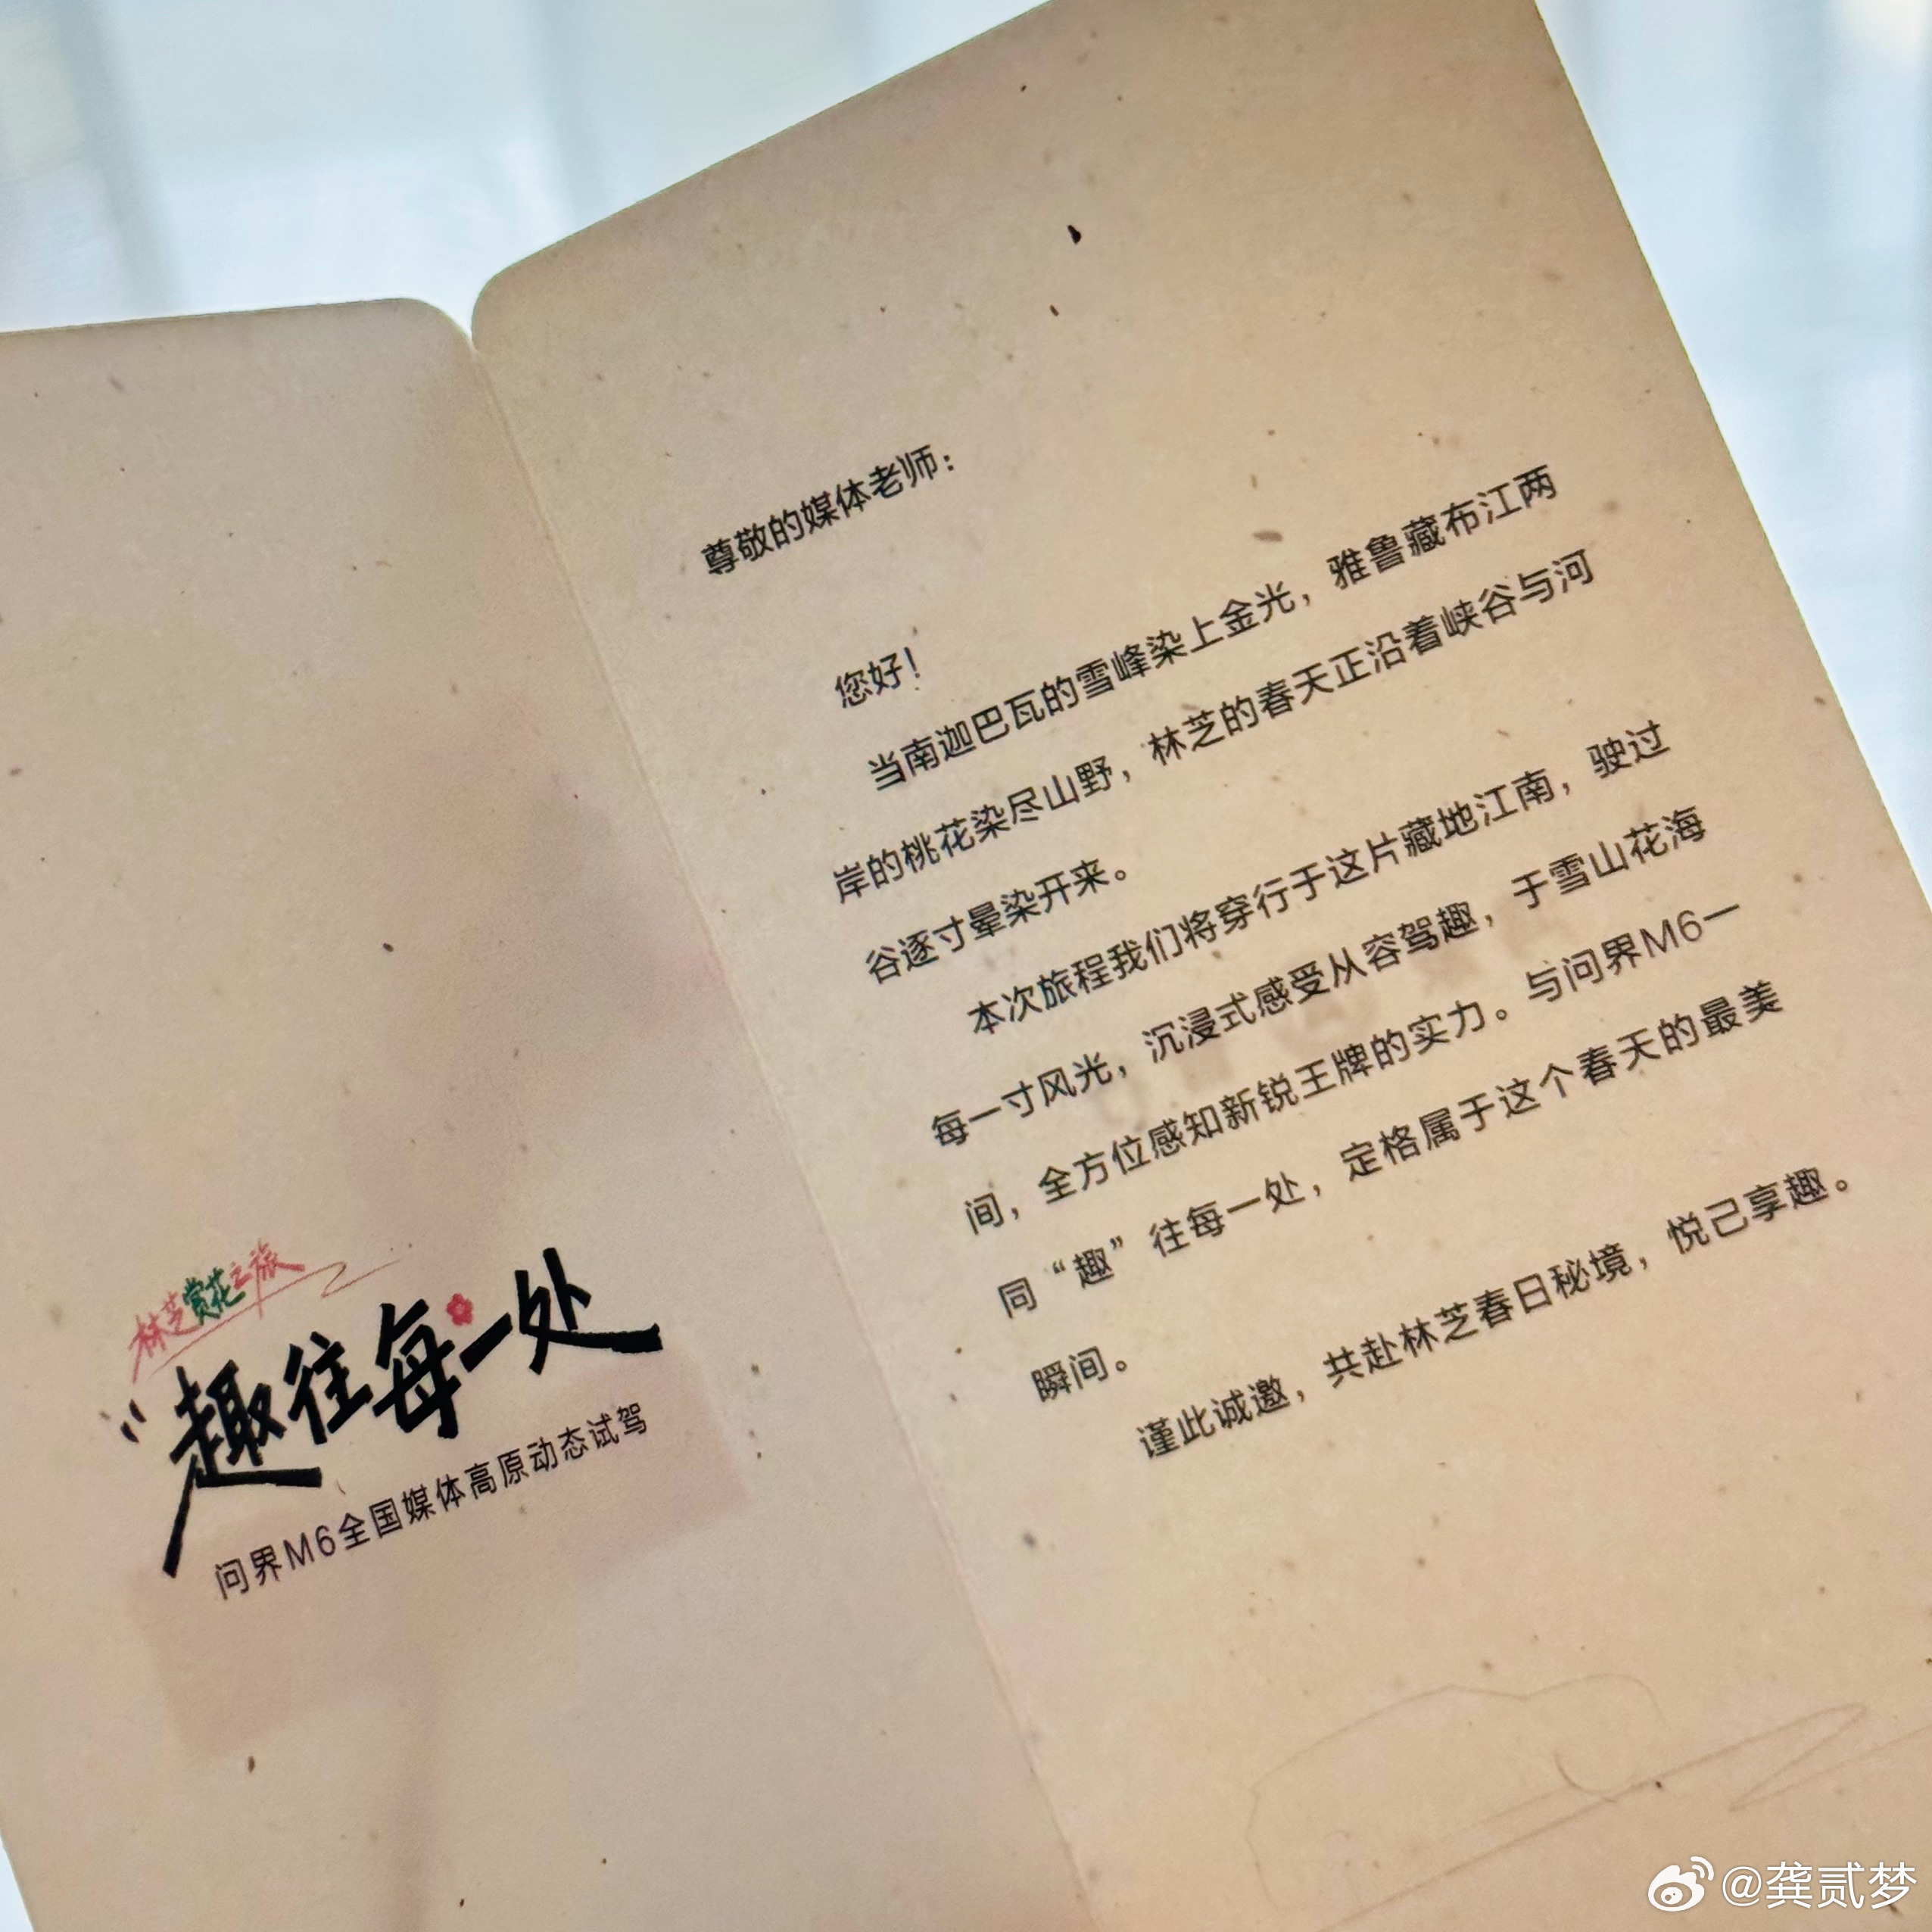 林芝赏花之旅
“趣往每一处
问界M6全国媒体高原动态试驾
尊敬的媒体老师：
您好！
当南迦巴瓦的雪峰染上金光，雅鲁藏布江两
岸的桃花染尽山野，林芝的春天正沿着峡谷与河
谷逐寸晕染开来。
本次旅程我们将穿行于这片藏地江南，驶过
每一寸风光，沉浸式感受从容驾趣，于雪山花海
间，全方位感知新锐王牌的实力。与问界M6一
同“趣”往每一处，定格属于这个春天的最美
瞬间。
谨此诚邀，共赴林芝春日秘境，悦己享趣。
@龚贰梦